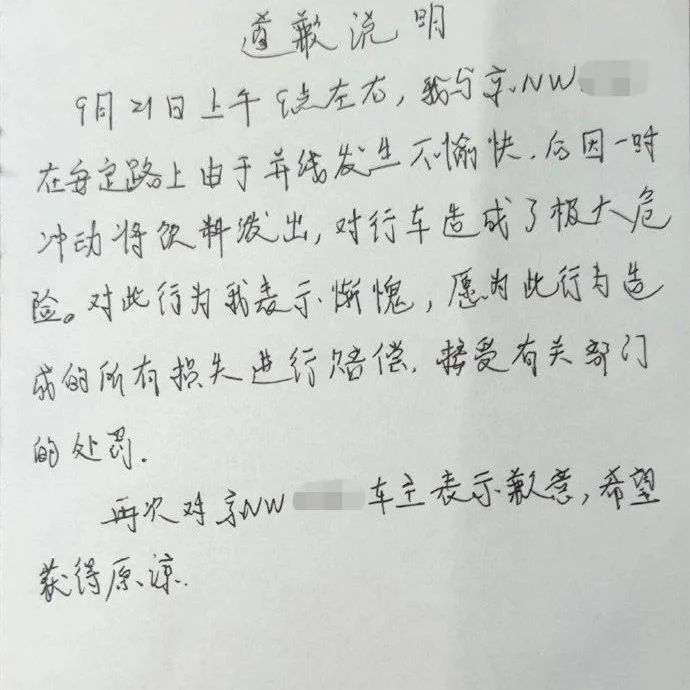 道歉说明
9月21日上午9点左右，我与京.NW
在安定路上由于并线发生不愉快.后因一时
冲动将饮料泼出，对行车造成了极大危
险。对此行为我表示惭愧，愿为此行为造
成的所有损失进行赔偿.接受有关部门
的处罚.
再次对京NW 车主表示歉意，希望
获得原谅.